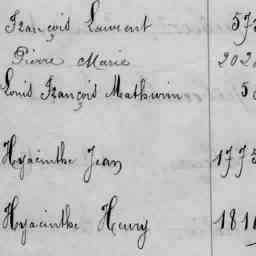 François Laurent 573
Pierre Marie 202
Louis François Mathurin 5
Hyacinthe Jean 1775
Hyacinthe Henry 181